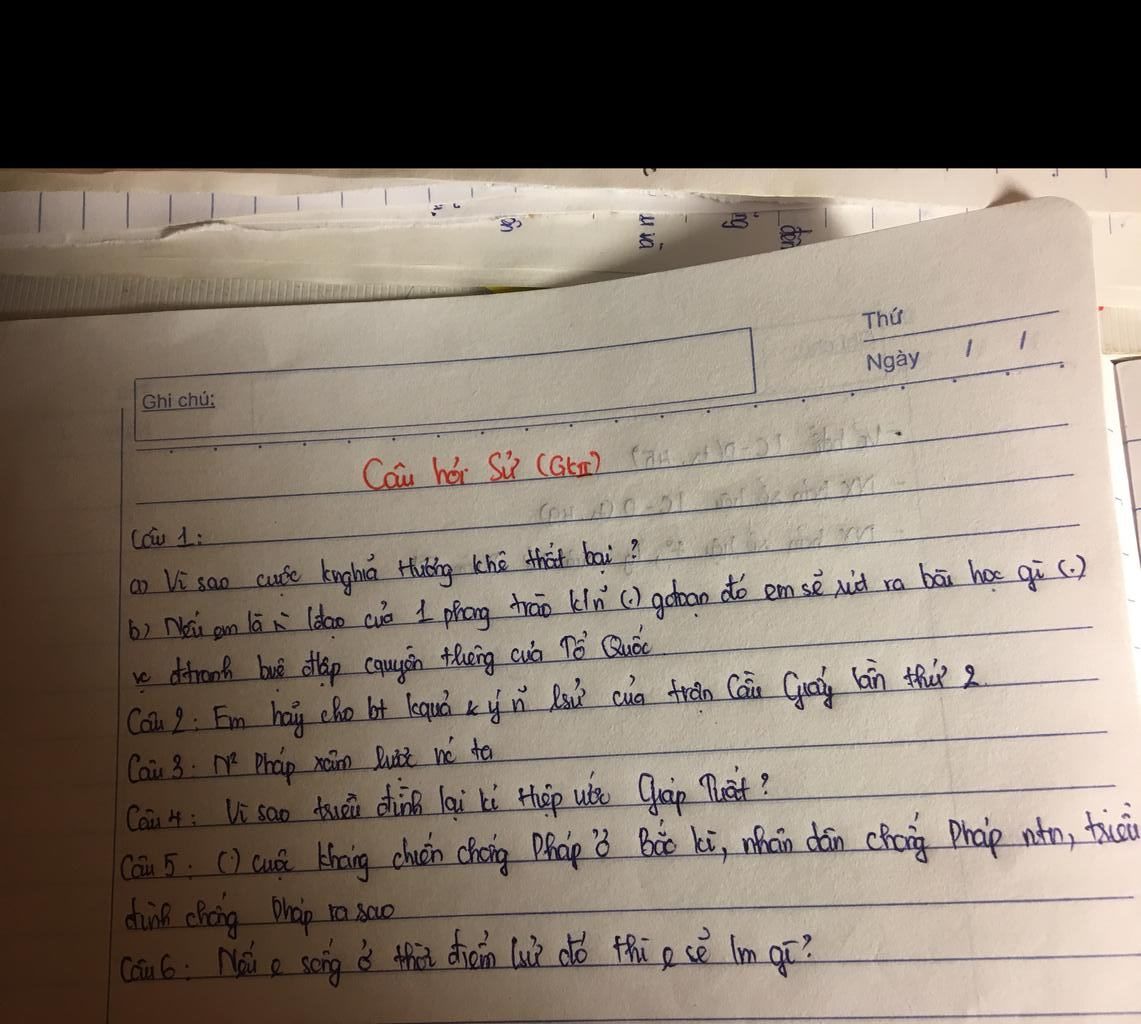 Thứ
Ngày / /
Ghi chú:
Câu hỏi Sử (GkII)
Câu 1:
a) Vì sao cuộc knghĩa Hương Khê thất bại ?
b) Nếu em là lđạo của 1 phong trào k/n (.) gđoạn đó em sẽ rút ra bài học gì (.)
đtranh bvệ đlập cquyền thống của Tổ Quốc
Câu 2: Em hãy cho bt kquả & ý n̄ lsử của trận Cầu Giấy lần thứ 2
Câu 3: N² Pháp xâm lược nc ta
Câu 4: Vì sao triều đình lại kí Hiệp ước Giáp Tuất ?
Câu 5: (.) cuộc kháng chiến chống Pháp ở Bắc kì, nhân dân chống Pháp ntn, triều
đình chống Pháp ra sao
Câu 6: Nếu e sống ở thời điểm lsử đó thì e sẽ lm gì?